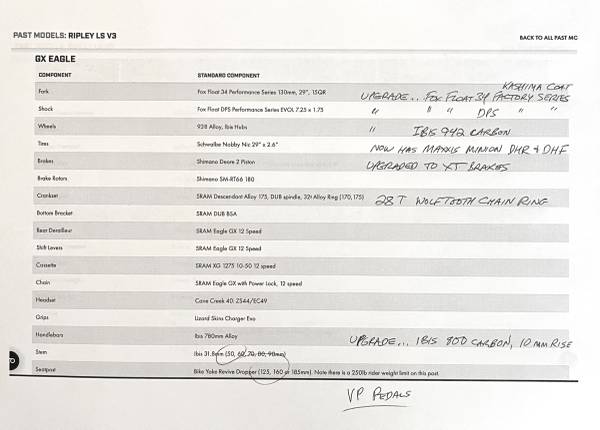 PAST MODELS: RIPLEY LS V3
BACK TO ALL PAST MC
GX EAGLE
COMPONENT STANDARD COMPONENT
KASHIMA COAT
Fork Fox Float 34 Performance Series 130mm, 29", 15QR UPGRADE... FOX FLOAT 34 FACTORY SERIES
Shock Fox Float DPS Performance Series EVOL 7.25 x 1.75 " " " DPS " "
Wheels 938 Alloy, Ibis Hubs " IBIS 942 CARBON
Tires Schwalbe Nobby Nic 29" x 2.6" NOW HAS MAXXIS MINION DHR & DHF
Brakes Shimano Deore 2 Piston UPGRADED TO XT BRAKES
Brake Rotors Shimano SM-RT66 180
Crankset SRAM Descendant Alloy 175, DUB spindle, 32t Alloy Ring (170,175) 28 T WOLFTOOTH CHAIN RING
Bottom Bracket SRAM DUB BSA
Rear Derailleur SRAM Eagle GX 12 Speed
Shift Levers SRAM Eagle GX 12 Speed
Cassette SRAM XG 1275 10-50 12 speed
Chain SRAM Eagle GX with Power Lock, 12 speed
Headset Cane Creek 40: ZS44/EC49
Grips Lizard Skins Charger Evo
Handlebars Ibis 780mm Alloy UPGRADE... IBIS 800 CARBON, 10 MM RISE
Stem Ibis 31.8mm (50, 60, 70, 80, 90mm)
Seatpost Bike Yoke Revive Dropper (125, 160 or 185mm). Note there is a 250lb rider weight limit on this post.
VP PEDALS